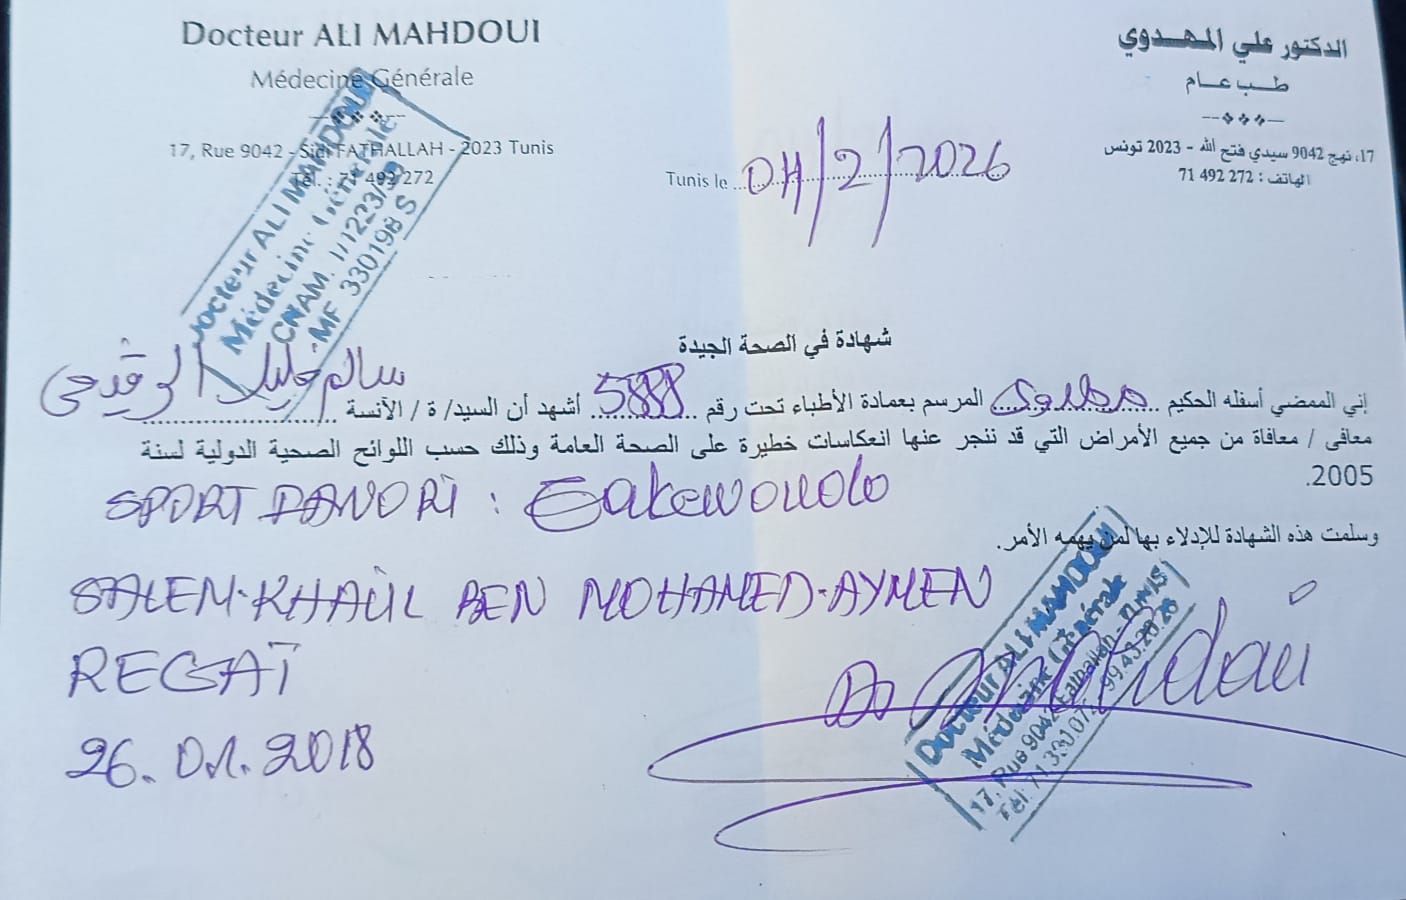 Docteur ALI MAHDOUI
Médecine Générale
17, Rue 9042 - Sidi FATHALLAH - 2023 Tunis
Tél. : 71 492 272
الدكتور علي المهدوي
طب عام
17، نهج 9042 سيدي فتح الله - 2023 تونس
الهاتف : 272 492 71
Docteur ALI MAHDOUI
Médecine Générale
CNAM. 1/1223/
MF 330198 S
Tunis le 04/2/2026
شهادة في الصحة الجيدة
إني الممضي أسفله الحكيم مهدوي المرسم بعمادة الأطباء تحت رقم 5888 أشهد أن السيد/ ة / الآنسة سالم خليل الرقيعي
معافى / معافاة من جميع الأمراض التي قد تنجر عنها انعكاسات خطيرة على الصحة العامة وذلك حسب اللوائح الصحية الدولية لسنة
2005.
SPORT
وسلمت هذه الشهادة للإدلاء بها لمن يهمه الأمر.
SALEM-KHALIL BEN MOHAMED-AYMEN
REGAÏ
26.01.2018
Dr Mahdoui
Docteur ALI MAHDOUI
Médecine Générale
17, Rue 9042 Fathallah - TUNIS
Tél: 71 33